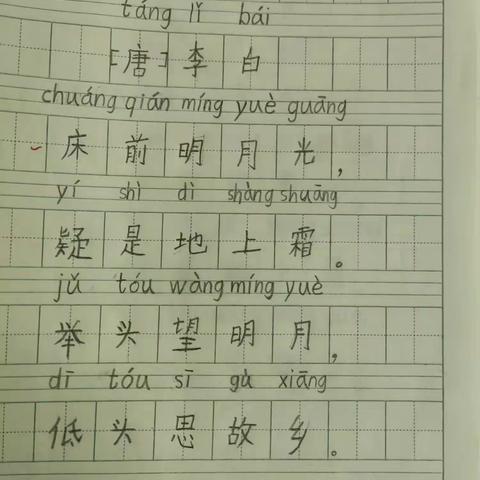 táng lǐ bái
[唐] 李白
chuáng qián míng yuè guāng
床前明月光，
yí shì dì shàng shuāng
疑是地上霜。
jǔ tóu wàng míng yuè
举头望明月，
dī tóu sī gù xiāng
低头思故乡。